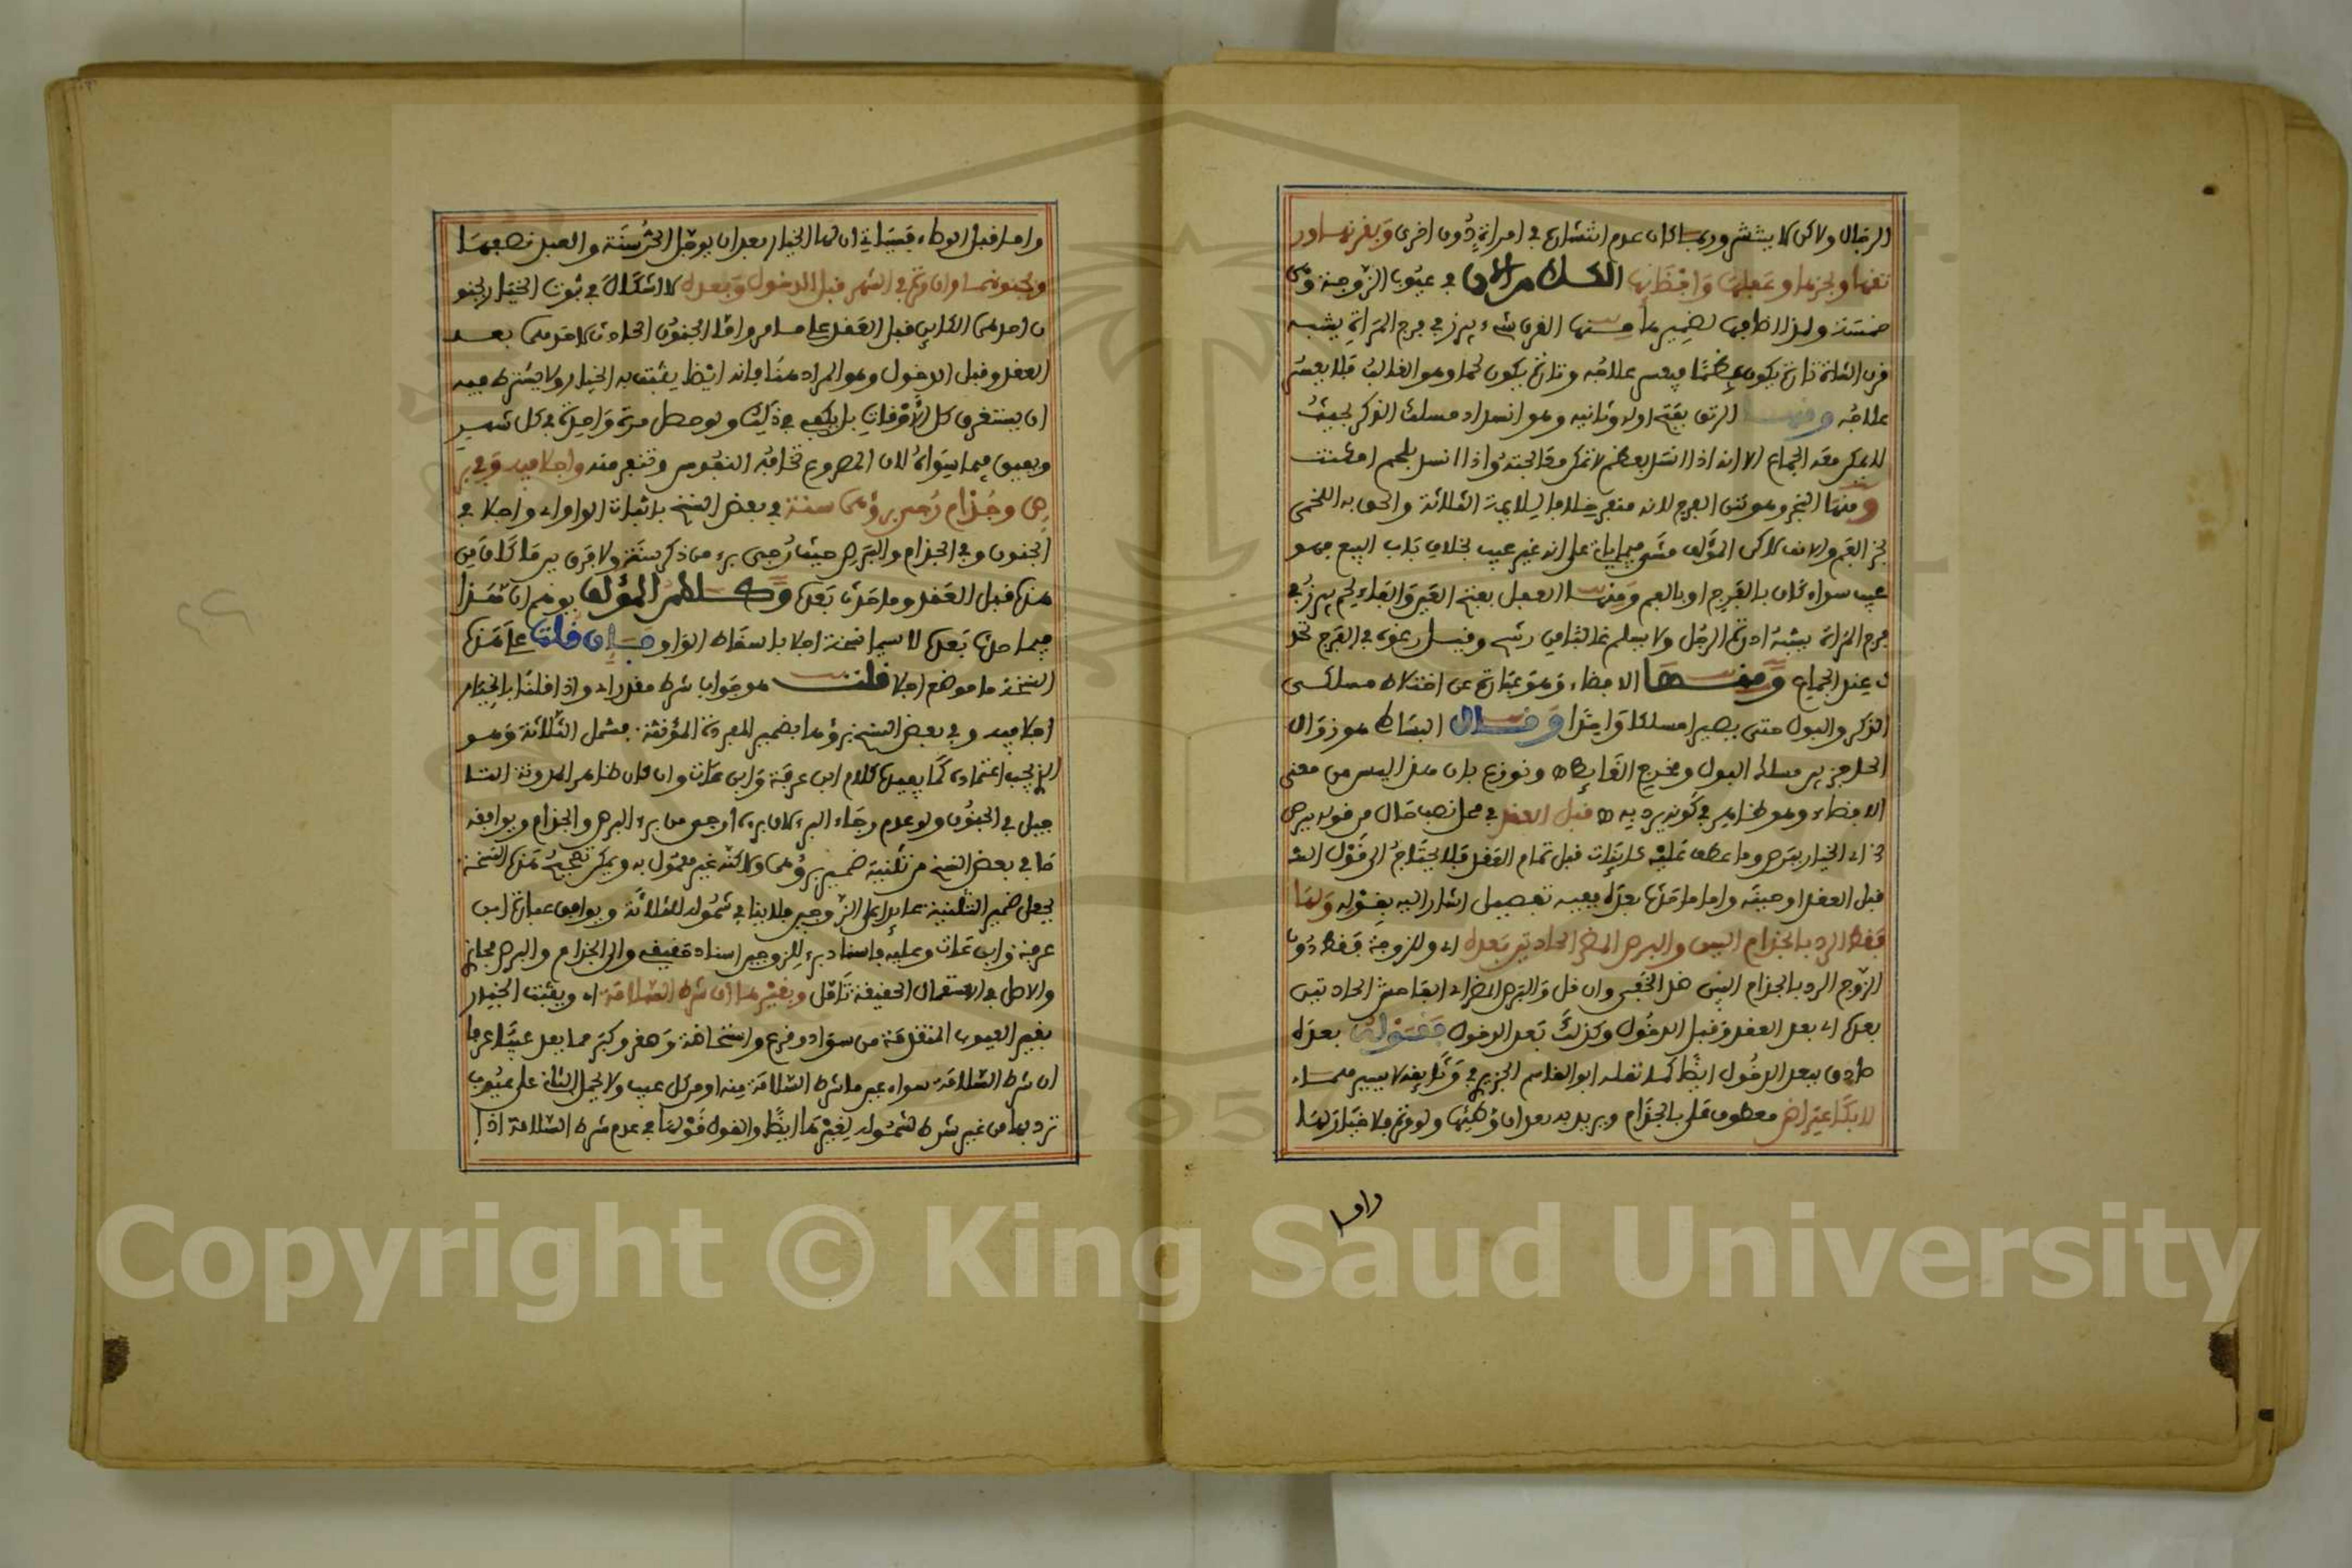 الرجال ولاكن لا ينتشر وربما كان عدم انتشاره في امراة دون اخرى وبقرنها ورتقها
وبخرها وعفلها وافضائها الكلام الان في عيوب الزوجة وهي
خمسة ولذا اضافها لضميرها منها القرن شيء يبرز في فرج المراة يشبه
قرن الشاة تارة يكون عظما فيعسر علاجه وتارة يكون لحما وهو الغالب فلا يعسر
علاجه ومنها الرتق بفتح اوله وثانيه وهو انسداد مسلك الذكر بحيث
لا يمكن معه الجماع الا انه اذا انسد بعظم لا تمكن معالجته واذا انسد بلحم امكنت
ومنها البخر وهو نتن الفرج لانه منفر خلافا للايمة الثلاثة والحق به اللخمي
بخر الفم والانف لاكن المؤلف مشى فيما ياتي على انه غير عيب بخلاف باب البيع فهو
عيب سواء كان بالفرج او بالفم ومنها العفل بفتح العين والفاء لحم يبرز في
فرج المراة يشبه ادرة الرجل ولا يسلم غالبا من رشح وقيل رغوة في الفرج تحد
ث عند الجماع ومنها الافضاء وهو عبارة عن اختلاط مسلكي
الذكر والبول حتى يصيرا مسلكا واحدا وقال البساطي هو زوال
الحاجز بين مسلك البول ومخرج الغايط ونوزع بان هذا ليس من معنى
الافضاء وهو ظاهر في كونه يرد به قبل العقد في محل نصب حال من قوله ببرص
فقط الرد بالجذام البين والبرص المضر الحادثين بعده اي وللزوجة فقط دون
الزوج الرد بالجذام البين لا الخفي وان قل والبرص المضر اي الفاحش الحادثين
بعده اي بعد العقد وقبل الدخول وكذلك بعد الدخول فقوله بعده
صادق ببعد الدخول ايضا كما نقله ابو القاسم الجزيري في وثايقه لا بيسيرهما
لا بكاعتراض معطوف على بالجذام ويريد به بعد ان وطئها ولو مرة فلا خيار لها
واما
واما قبل الوطء فسياتي ان لها الخيار بعد ان يؤجل الحر سنة والعبد نصفها
وبجنونهما وان مرة في الشهر قبل الدخول وبعده لا اشكال في ثبوت الخيار بجنو
ن احدهما الكاين قبل العقد على ما مر واما الجنون الحادث لاحدهما بعد
العقد وقبل الدخول وهو المراد هنا فانه ايضا يثبت به الخيار ولا يشترط فيه
ان يستغرق كل الاوقات بل يكفي في ذلك ولو حصل مرة واحدة في كل شهر
ويفيق فيما سواه لان المصروع تخافه النفوس وتنفر منه واجلا فيه وفي بر
ص وجذام رجي برؤهما سنة في بعض النسخ باثبات الواو اي واجلا في
الجنون وفي الجذام والبرص حيث رجي برء من ذكر سنة ولا فرق بين ما كان من
هذا قبل العقد وما حدث بعده وكلام المؤلف يوهم ان هذا
فيما حدث بعده لا سيما نسخة اجلا باسقاط الواو فان قلت على هذه
النسخة ما موضع اجلا قلت هو جواب شرط مقدر اي واذا قلنا بالخيار
اجلا فيه وفي بعض النسخ برؤها بضمير المفردة المؤنثة فيشمل الثلاثة وهو
الذي يجب اعتماده كما يفيده كلام ابن عرفة وابن عات وان كان ظاهر المدونة التا
جيل في الجنون ولو عدم رجاء البرء لان برءه ارجى من برء البرص والجذام ويوافقه
ما في بعض النسخ من تثنية ضمير برؤهما ولاكنه غير معمول به ويمكن تصحيح هذه النسخة
بجعل ضمير التثنية عايدا على الزوجين فلا ينافي شموله للثلاثة ويوافق عبارة ابن
عرفة وابن عات وعليه فاسناد برء للزوجين اسناد حقيقي والى الجذام والبرص مجاز
والاصل في الاستعمال الحقيقة تامل وبغيرها ان شرط السلامة اي ويثبت الخيار
بغير العيوب المتقدمة من سواد وقرع واستحاضة وصغر وكبر مما يعد عيبا عرفا
ان شرط السلامة سواء عين ما شرط السلامة منه او من كل عيب ولا يحمل الثاني على عيوب
ترد بها من غير شرط لشموله لغيرها ايضا والقول قولها في عدم شرط السلامة اذا
Copyright © King Saud University